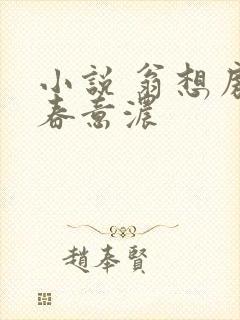 小說 翁想房
春意濃
趙奉賢